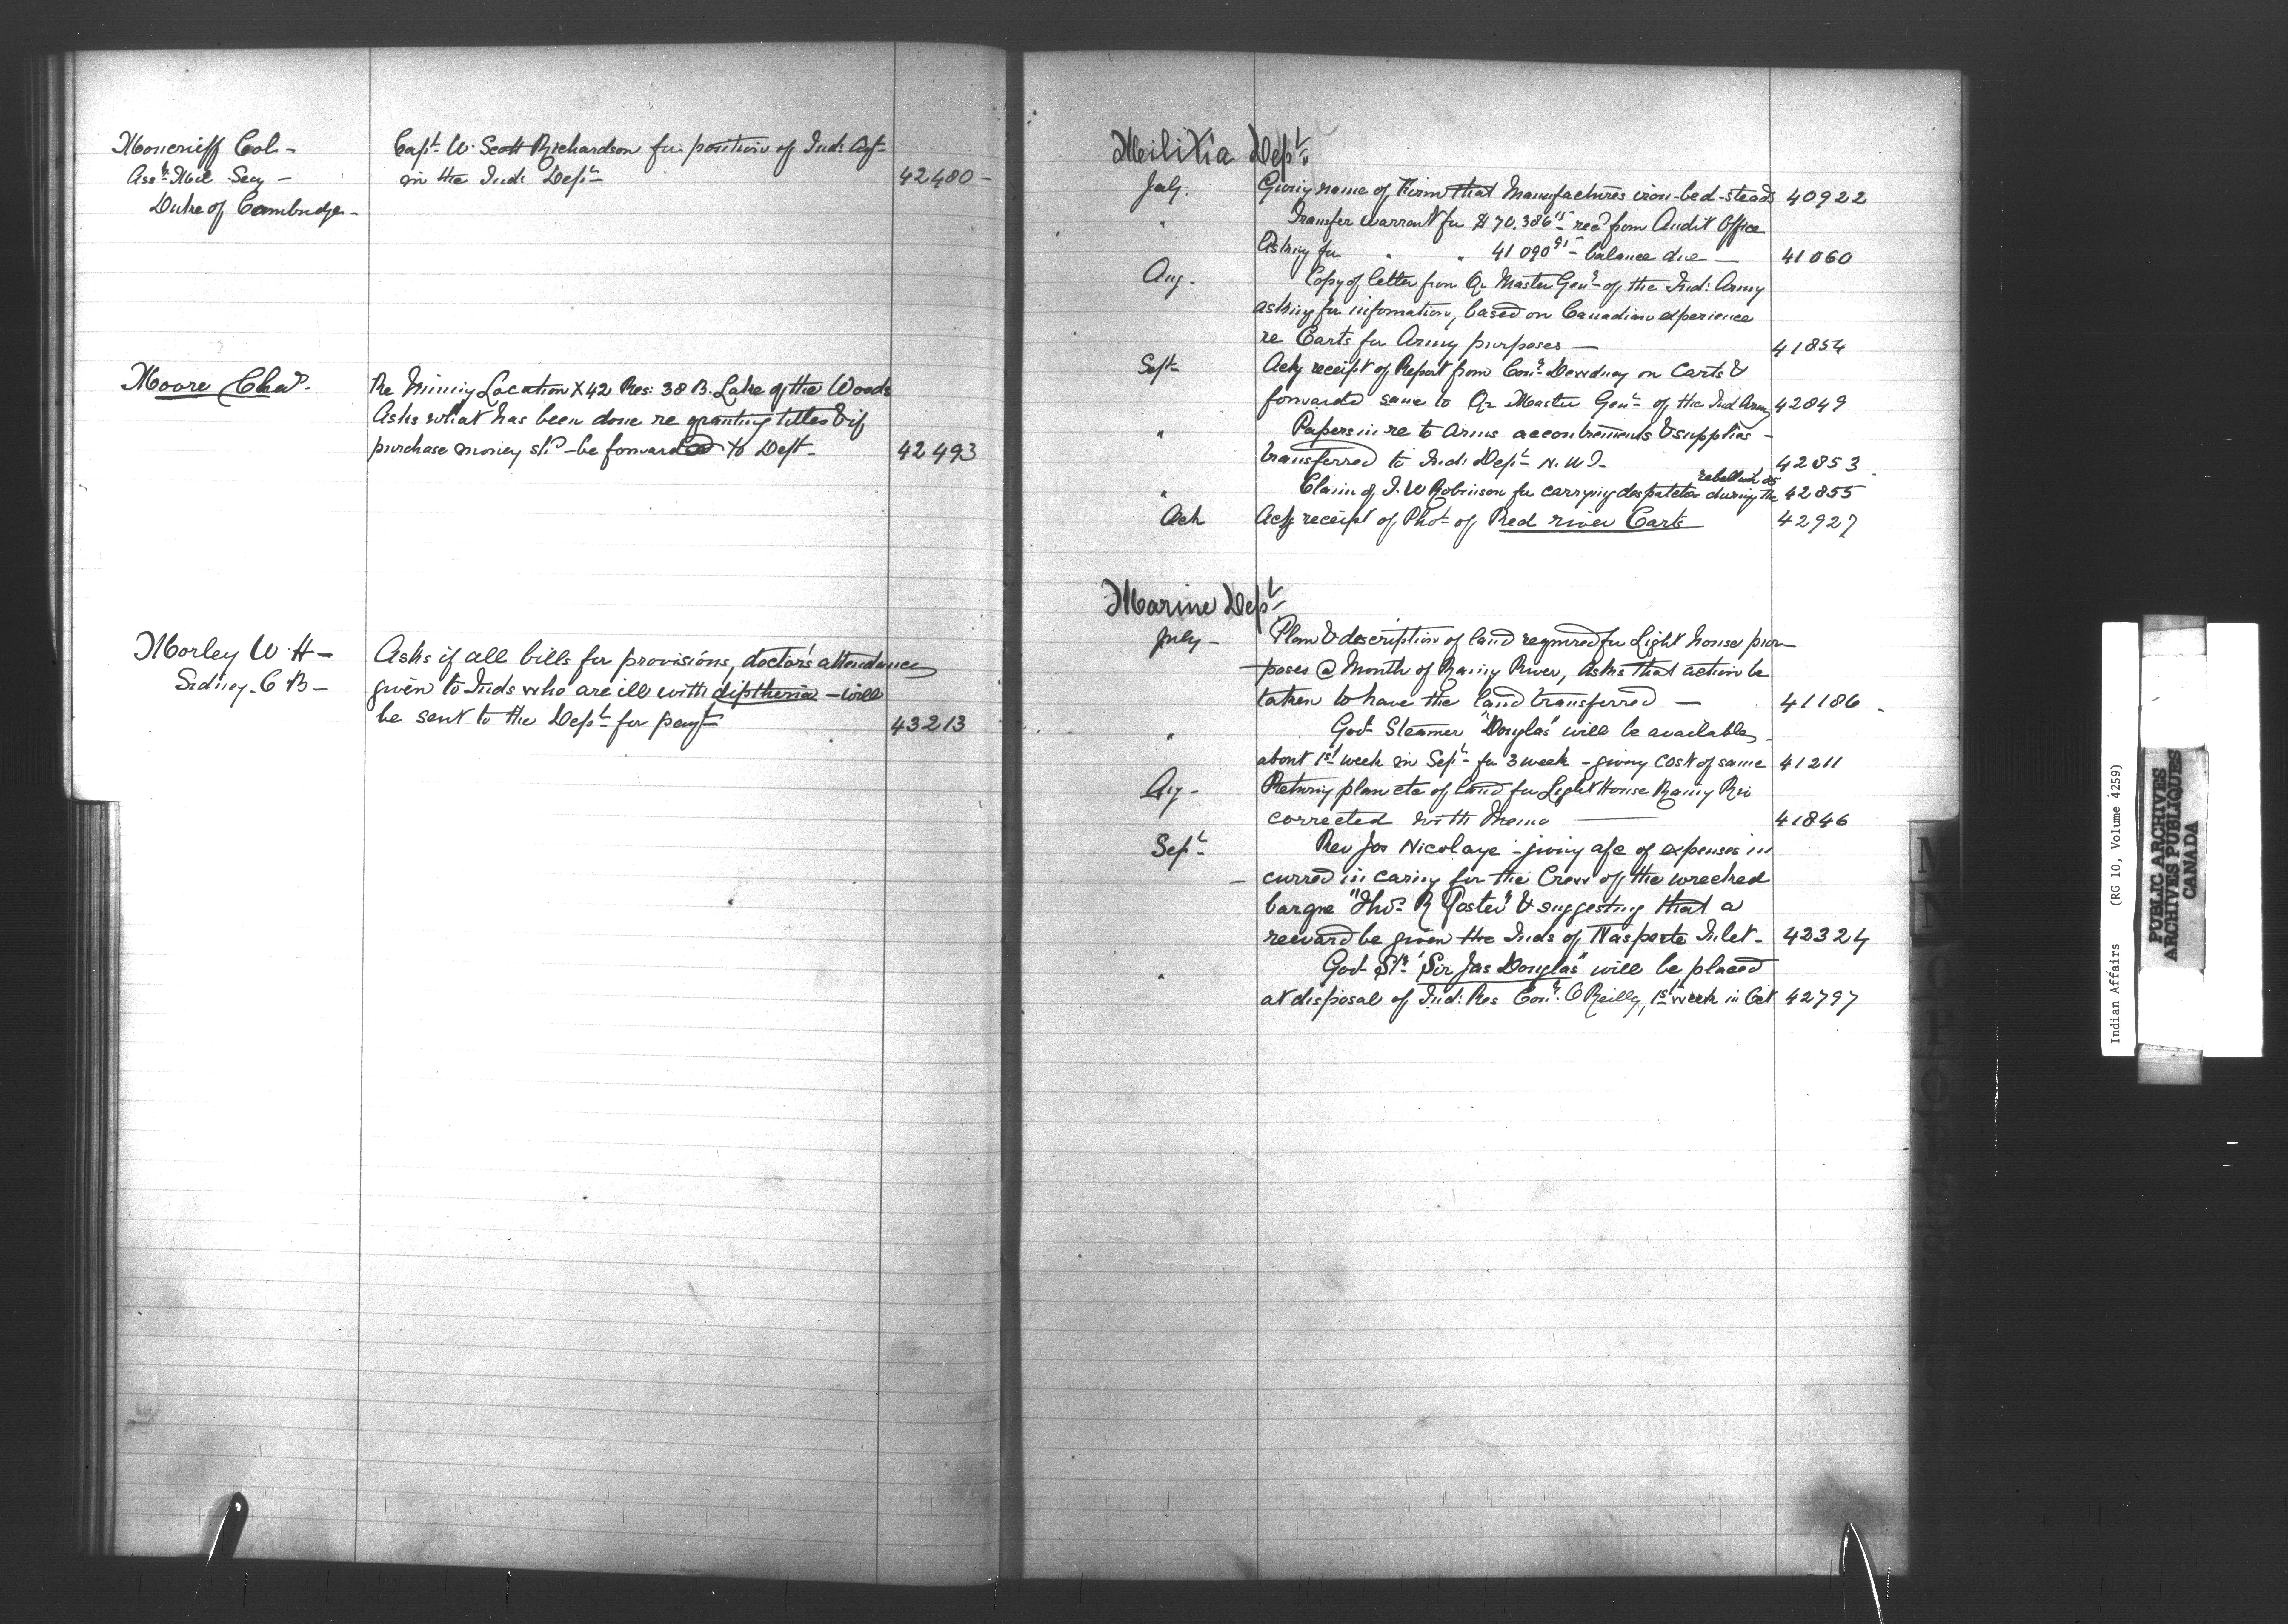 Moncrieff Col - Capt W. Scott Richardson for position of Ind: Agt
Asst Mil Secy - in the Ind: Dept 42480 -
Duke of Cambridge -
Moore Chas. Re Mining Location X42 Res: 38 B. Lake of the Woods
Asks what has been done re granting titles & if
purchase money shd be forwarded to Dept - 42493
Morley W. H - Asks if all bills for provisions, doctor's attendance
Sidney - C B - given to Inds who are ill with diptheria - will
be sent to the Dept for payt 43213
Militia Dept.
July. Giving name of Firm that Manufactures iron-bed-steads 40922
" Transfer warrant for $70.386 15 recd from Audit Office
Asking for " " 41090 91 - balance due - 41060
Aug - Copy of letter from Qr Master Genl of the Ind: Army
asking for information, based on Canadian experience
re Carts for Army purposes - 41854
Sept Ackg receipt of Report from Comr Dewdney on Carts &
forwards same to Qr Master Genl of the Ind Army 42849
" Papers in re to arms accoutrements & supplies -
transferred to Ind: Dept N. W T - 42853
rebellion 85
" Claim of J. W Robinson for carrying despatches during the 42855
Oct Ackg receipt of Phot of Red river Carts 42927
Marine Dept
July - Plan & description of land required for Light house pur-
poses @ Mouth of Rainy River, asks that action be
taken to have the land transferred - 41186 -
" Govt Steamer "Douglas" will be available
about 1st week in Sept for 3 week - giving cost of same 41211
Aug - Returng plan etc of land for Light House Rainy Riv
corrected with Memo 41846
Sept Rev Jos Nicolaye - giving a/c of expenses in
- curred in caring for the Crew of the wrecked
barque "Thos R Foster" & suggesting that a
reward be given the Inds of Nasparte Inlet - 42324
" Govt Str "Sir Jas Douglas" will be placed
at disposal of Ind: Res Comr O'Reilly, 1st week in Oct 42797
M
N
O
P
Q
R
S
Indian Affairs (RG 10, Volume 4259)
PUBLIC ARCHIVES
ARCHIVES PUBLIQUES
CANADA